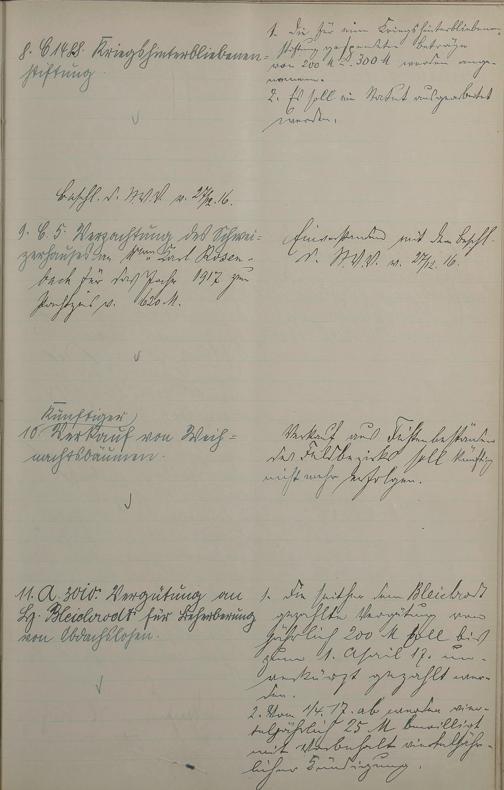 8. C 1488 Kriegshinterbliebenen=
stiftung.
1. Die für eine Kriegshinterbliebenen-
stiftung gespendeten Beträge
von 200 M u. 300 M werden ange-
nommen.
2. Es soll ein Statut ausgearbeitet
werden.
Beschl. d. W.V.V. v. 27/12. 16.
9. C. 5. Verpachtung des Schwei=
zerhauses an Karl Rosen-
beck für das Jahr 1917 zum
Pachtpreis v. 620 M.
Einverstanden mit dem Beschl.
d. W.V.V. v. 27/12. 16.
Künftiger
10. Verkauf von Weih=
nachtsbäumen.
Verkauf aus Fichtenbeständen
des Feldbezirks soll künftig
nicht mehr erfolgen.
11. A. 3010. Vergütung an
Bleichrodt für Beherberung
von Obdachslosen.
1. Die seither dem Bleichrodt
gezahlte Vergütung von
jährlich 200 M soll bis
zum 1. April 17. un-
verkürzt gezahlt wer-
den.
2. Vom 1/4. 17. ab werden vier-
teljährlich 25 M bewilligt
mit Vorbehalt vierteljähr-
licher Kündigung.